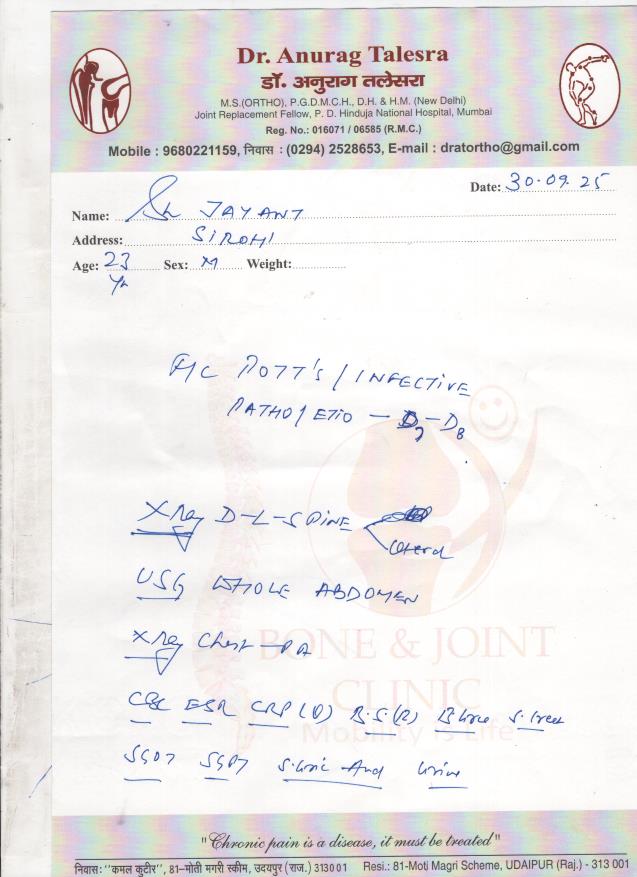 Dr. Anurag Talesra
डॉ. अनुराग तलेसरा
M.S.(ORTHO), P.G.D.M.C.H., D.H. & H.M. (New Delhi)
Joint Replacement Fellow, P. D. Hinduja National Hospital, Mumbai
Reg. No.: 016071 / 06585 (R.M.C.)
Mobile : 9680221159, निवास : (0294) 2528653, E-mail : dratortho@gmail.com
Date: 30.09.25
Name: JAYANT
Address: SIROHI
Age: 23 Yr Sex: M Weight:
POTT'S / INFECTIVE
D7-D8
X Ray D-L-SPINE
USG WHOLE ABDOMEN
X Ray Chest - PA
BONE & JOINT
CLINIC
CBC ESR CRP (Q) B.S.(R) B.Urea S.Creat
Mobility is Life
SGOT SGPT S.Uric Acid Urine
"Chronic pain is a disease, it must be treated"
निवास: "कमल कुटीर", 81-मोती मगरी स्कीम, उदयपुर (राज.) 313001 Resi.: 81-Moti Magri Scheme, UDAIPUR (Raj.) - 313 001